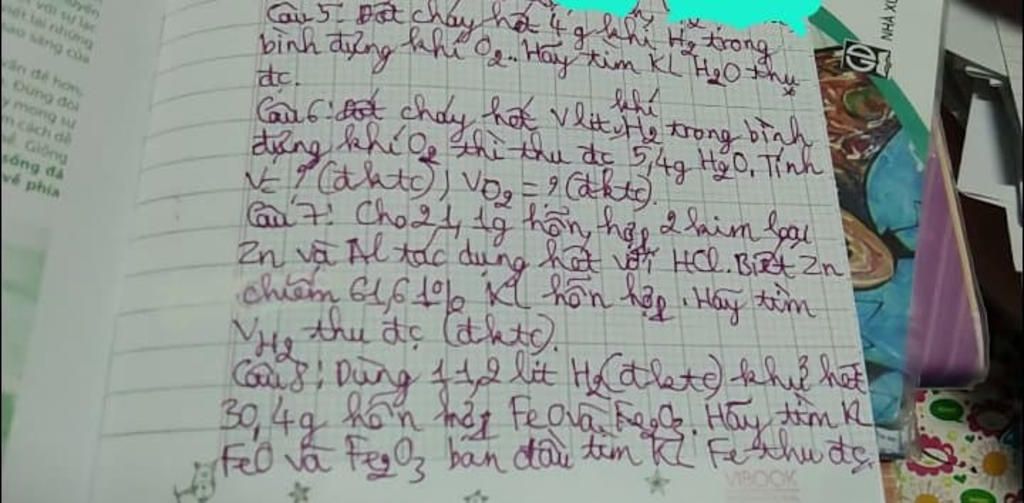 Câu 5: Đốt cháy hết 4g khí H2 trong
bình đựng khí O2.. Hãy tìm KL H2O thu
đc.
Câu 6: đốt cháy hết V lít khí H2 trong bình
đựng khí O2 thì thu đc 5,4g H2O. Tính
V= ? (đktc), VO2 = ? (đktc).
Câu 7: Cho 21,1g hỗn hợp 2 kim loại
Zn và Al tác dụng hết với HCl. Biết Zn
chiếm 61,61% KL hỗn hợp. Hãy tìm
VH2 thu đc (đktc).
Câu 8: Dùng 11,2 lít H2 (đktc) khử hết
30,4g hỗn hợp FeO và Fe2O3. Hãy tìm KL
FeO và Fe2O3 ban đầu tìm KL Fe thu đc.
VIBOOK
NHÀ XU
với sự lạc
lại những
sao sáng của
vấn đề hơn
Đừng đòi
y mong sự
m cách dễ
Giống
sống đã
về phía